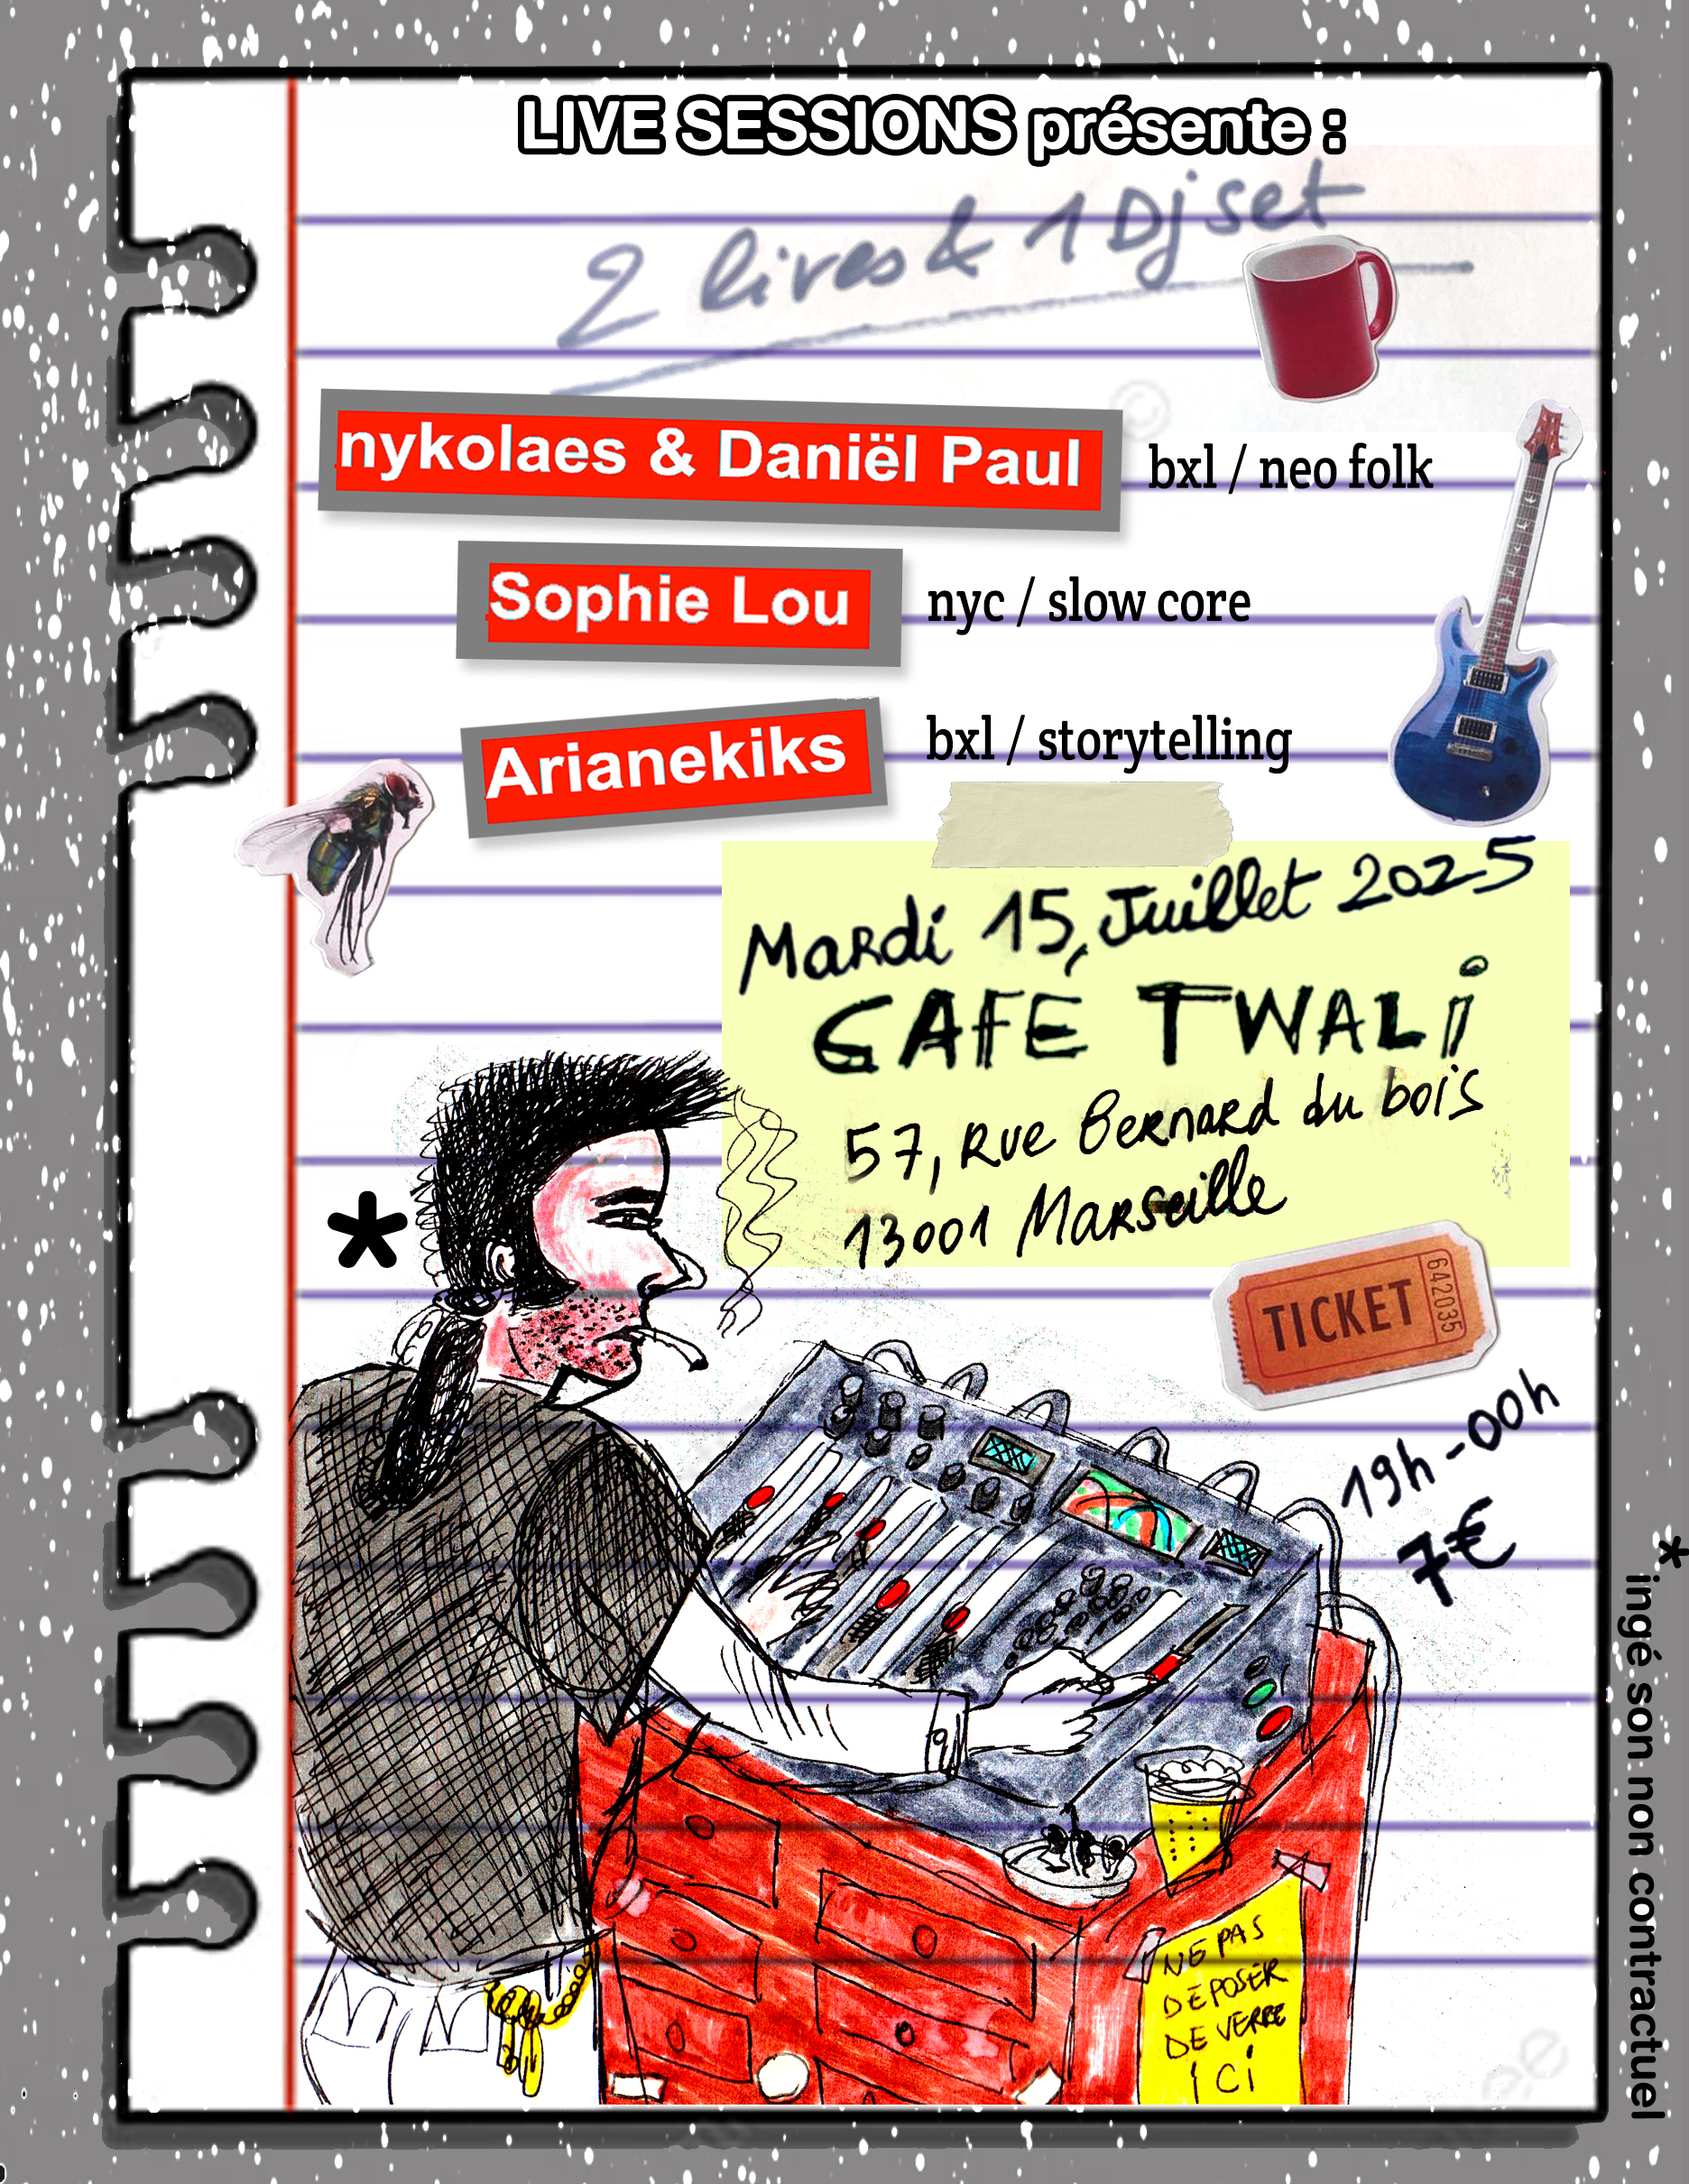 LIVE SESSIONS présente :
2 lives & 1 Dj set
nykolaes & Daniël Paul
bxl / neo folk
Sophie Lou
nyc / slow core
Arianekiks
bxl / storytelling
Mardi 15, Juillet 2025
CAFÉ TWALi
57, Rue Bernard du bois
13001 Marseille
*
TICKET
642035
19h-00h
7€
* ingé son non contractuel
NE PAS
DÉPOSER
DE VERRE
iCi